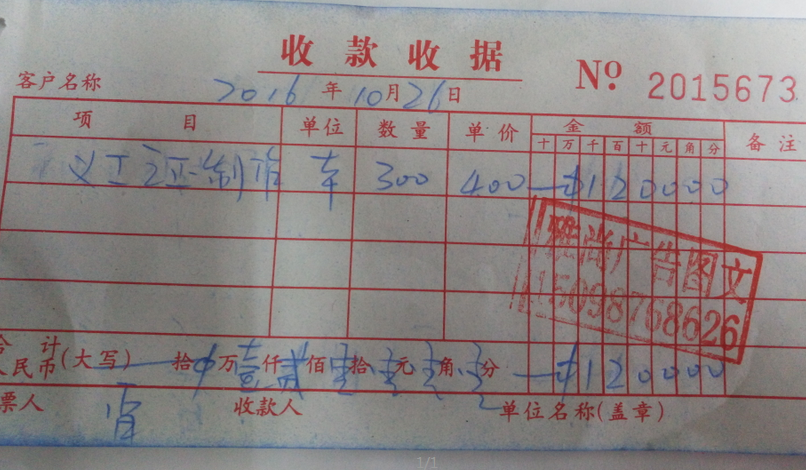 收款收据
No 2015673
客户名称 2016年10月26日
项目 单位 数量 单价 金额 备注
十 万 千 百 十 元 角 分
义工证制作 300 400 ¥120000
雅尚广告图文
15098768626
合计人民币(大写) 拾 万壹仟贰佰零拾零元零角零分 ¥120000
票人 收款人 单位名称(盖章)
1/1